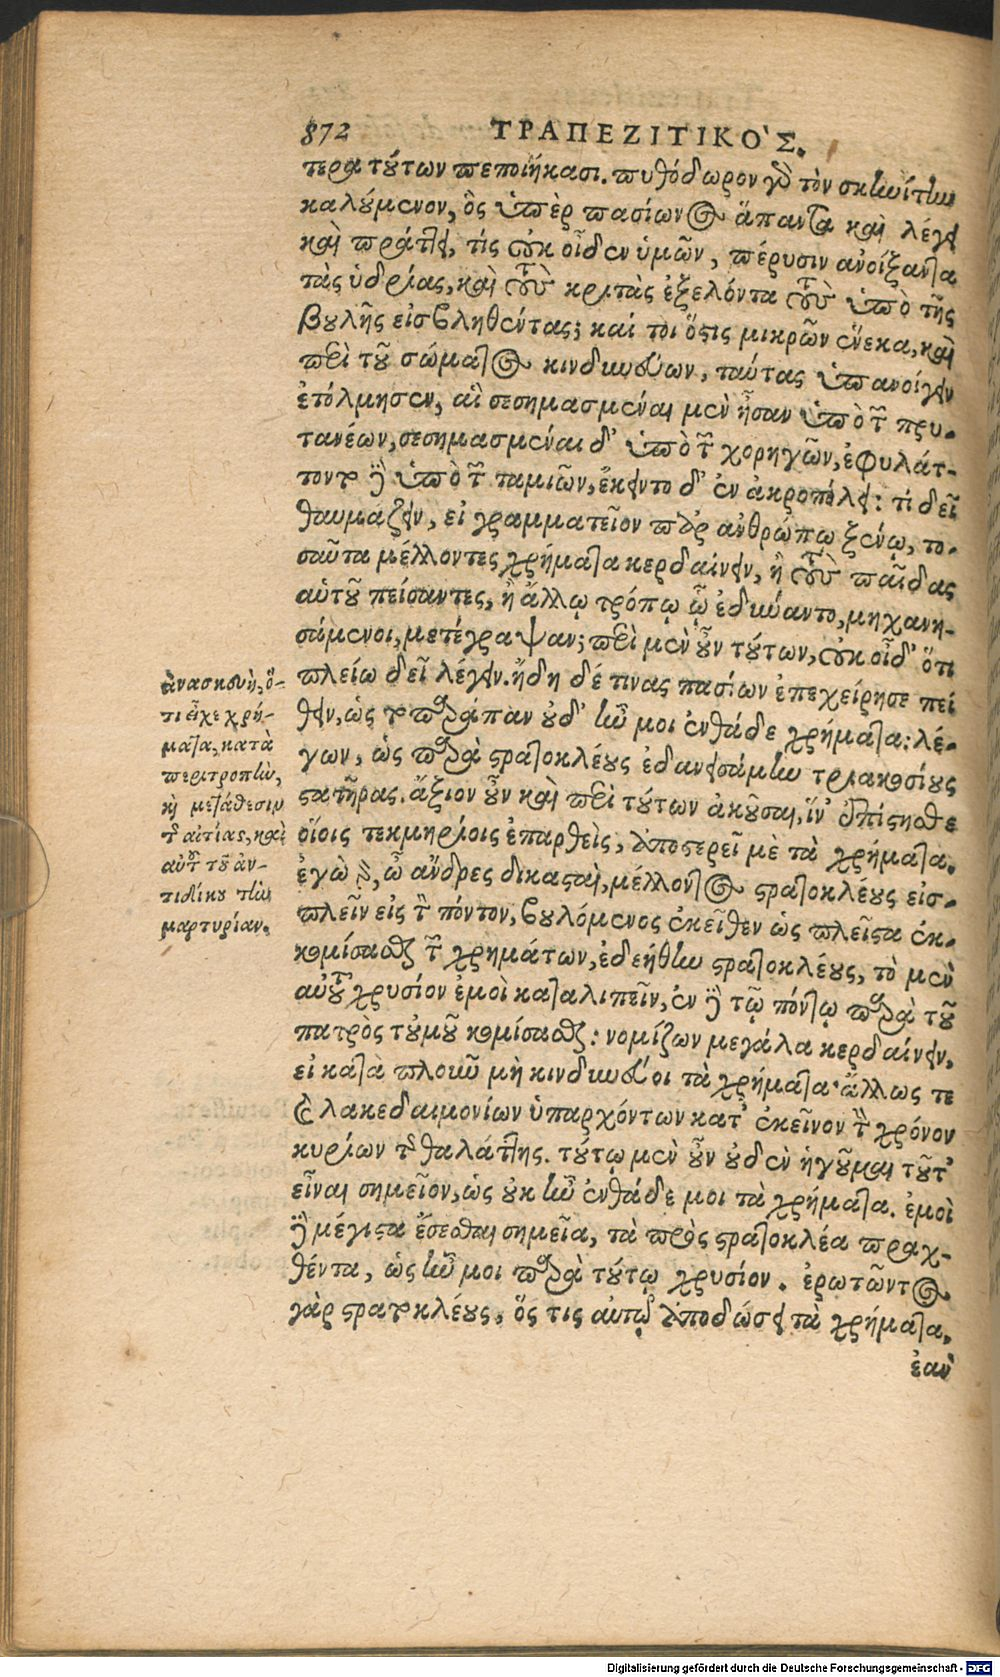 872 ΤΡΑΠΕΖΙΤΙΚΟ'Σ.
τερα τούτων πεποιήκασι. πυθόδωρον γὰρ τὸν σκηνίτην
καλούμενον, ὃς ὑπὲρ πασίωνος ἅπαντα καὶ λέγει
καὶ πράττει, τίς οὐκ οἶδεν ὑμῶν, πέρυσιν ἀνοίξαντα
τὰς ὑδρίας, καὶ τοὺς κριτὰς ἐξελόντα τοὺς ὑπὸ τῆς
βουλῆς εἰσβληθέντας; καί τοι ὅστις μικρῶν ἕνεκα, καὶ
περὶ τοῦ σώματος κινδυνεύων, ταύτας ὑπανοίγειν
ἐτόλμησεν, αἳ σεσημασμέναι μὲν ἦσαν ὑπὸ τῶν πρυ-
τανέων, σεσημασμέναι δ' ὑπὸ τῶν χορηγῶν, ἐφυλάτ-
τοντο δὲ ὑπὸ τῶν ταμιῶν, ἔκειντο δ' ἐν ἀκροπόλει: τί δεῖ
θαυμάζειν, εἰ γραμματεῖον παρ' ἀνθρώπῳ ξένῳ, το-
σαῦτα μέλλοντες χρήματα κερδαίνειν, ἢ τοὺς παῖδας
αὐτοῦ πείσαντες, ἢ ἄλλῳ τρόπῳ ᾧ ἐδύναντο, μηχανη-
σάμενοι, μετέγραψαν; περὶ μὲν οὖν τούτων, οὐκ οἶδ' ὅτι
πλείω δεῖ λέγειν. ἤδη δέ τινας πασίων ἐπεχείρησε πεί
θειν, ὡς τοπαράπαν οὐδ' ἦν μοι ἐνθάδε χρήματα: λέ-
γων, ὡς παρὰ στρατοκλέους ἐδανεισάμην τριακοσίους
στατῆρας. ἄξιον οὖν καὶ περὶ τούτων ἀκοῦσαι, ἵν' ἐπίστησθε
οἵοις τεκμηρίοις ἐπαρθεὶς, ἀποστερεῖ μὲ τὰ χρήματα.
ἐγὼ γὰρ, ὦ ἄνδρες δικασταὶ, μέλλοντος στρατοκλέους εἰσ-
πλεῖν εἰς τὸν πόντον, βουλόμενος ἐκεῖθεν ὡς πλεῖστα ἐκ-
κομίσασθαι τῶν χρημάτων, ἐδεήθην στρατοκλέους, τὸ μὲν
αὑτοῦ χρυσίον ἐμοὶ καταλιπεῖν, ἐν δὲ τῷ πόντῳ παρὰ τοῦ
πατρὸς τοὐμοῦ κομίσασθαι: νομίζων μεγάλα κερδαίνειν,
εἰ κατὰ πλοῦν μὴ κινδυνεύοι τὰ χρήματα· ἄλλως τε
καὶ λακεδαιμονίων ὑπαρχόντων κατ' ἐκεῖνον τὸν χρόνον
κυρίων τῆς θαλάττης. τούτῳ μὲν οὖν οὐδὲν ἡγοῦμαι τοῦτ'
εἶναι σημεῖον, ὡς οὐκ ἦν ἐνθάδε μοι τὰ χρήματα. ἐμοὶ
δὲ μέγιστα ἔσεσθαι σημεῖα, τὰ πρὸς στρατοκλέα πραχ-
θέντα, ὡς ἦν μοι παρὰ τούτῳ χρυσίον. ἐρωτῶντος
γὰρ στρατοκλέους, ὅς τις αὐτῷ ἀποδώσει τὰ χρήματα.
ἐαν
ἀνασκευὴ, ὅ-
τι εἶχε χρή-
ματα, κατὰ
περιτροπὴν,
καὶ μετάθεσιν
τῆς αἰτίας, καὶ
αὐτοῦ τοῦ ἀν-
τιδίκου τὴν
μαρτυρίαν.
Digitalisierung gefördert durch die Deutsche Forschungsgemeinschaft - DFG